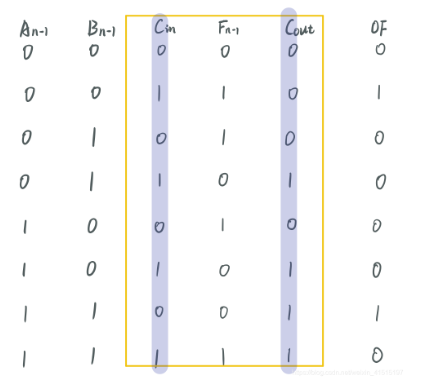 An-1 Bn-1 Cin Fn-1 Cout OF
0 0 0 0 0 0
0 0 1 1 0 1
0 1 0 1 0 0
0 1 1 0 1 0
1 0 0 1 0 0
1 0 1 0 1 0
1 1 0 0 1 1
1 1 1 1 1 0